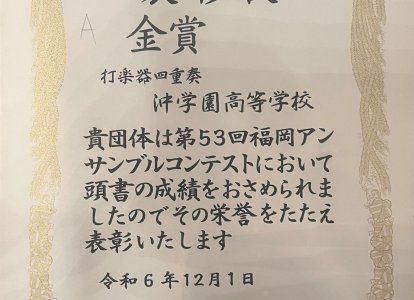 A
金賞
打楽器四重奏
沖学園高等学校
貴団体は第53回福岡アン
サンブルコンテストにおいて
頭書の成績をおさめられま
したのでその栄誉をたたえ
表彰いたします
令和6年12月1日